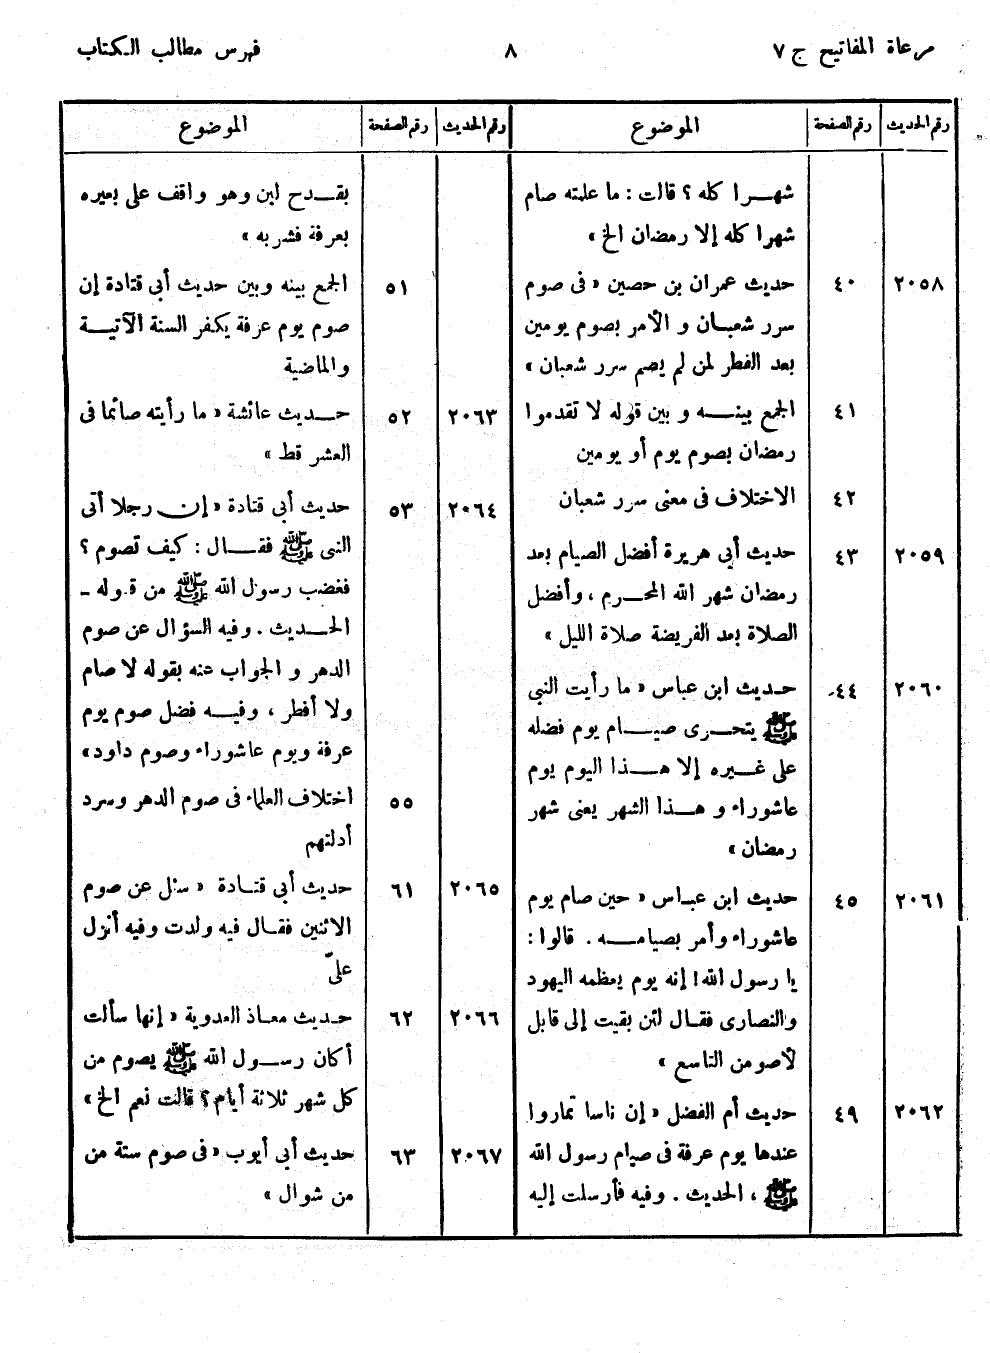 مرعاة المفاتيح ج ٧
٨
فهرس مطالب الكتاب
رقم الحديث
رقم الصفحة
الموضوع
شهرا كله ؟ قالت : ما علمته صام
شهرا كله إلا رمضان الخ »
٢٠٥٨ ٤٠ حديث عمران بن حصين « فى صوم
سرر شعبان و الأمر بصوم يومين
بعد الفطر لمن لم يصم سرر شعبان »
٤١ الجمع بينه و بين قوله لا تقدموا
رمضان بصوم يوم أو يومين
٤٢ الاختلاف فى معنى سرر شعبان
٢٠٥٩ ٤٣ حديث أبى هريرة أفضل الصيام بعد
رمضان شهر الله المحرم ، وأفضل
الصلاة بعد الفريضة صلاة الليل »
٢٠٦٠ ٤٤ حديث ابن عباس « ما رأيت النبي
ﷺ يتحرى صيام يوم فضله
على غيره إلا هذا اليوم يوم
عاشوراء و هذا الشهر يعنى شهر
رمضان »
٢٠٦١ ٤٥ حديث ابن عباس « حين صام يوم
عاشوراء وأمر بصيامه . قالوا :
يا رسول الله ! إنه يوم يعظمه اليهود
والنصارى فقال لئن بقيت إلى قابل
لأصومن التاسع »
٢٠٦٢ ٤٩ حديث أم الفضل « إن ناسا تماروا
عندها يوم عرفة فى صيام رسول الله
ﷺ ، الحديث . وفيه فأرسلت إليه
رقم الحديث
رقم الصفحة
الموضوع
بقدح لبن وهو واقف على بعيره
بعرفة فشربه »
٥١ الجمع بينه وبين حديث أبى قتادة إن
صوم يوم عرفة يكفر السنة الآتية
والماضية
٢٠٦٣ ٥٢ حديث عائشة « ما رأيته صائما فى
العشر قط »
٢٠٦٤ ٥٣ حديث أبى قتادة « إن رجلا أتى
النبى ﷺ فقال : كيف تصوم ؟
فغضب رسول الله ﷺ من قوله ـ
الحديث . وفيه السؤال عن صوم
الدهر و الجواب عنه بقوله لا صام
ولا أفطر ، وفيه فضل صوم يوم
عرفة ويوم عاشوراء وصوم داود»
٥٥ اختلاف العلماء فى صوم الدهر وسرد
أدلتهم
٢٠٦٥ ٦١ حديث أبى قتادة « سئل عن صوم
الاثنين فقال فيه ولدت وفيه أنزل
علىّ
٢٠٦٦ ٦٢ حديث معاذ العدوية « إنها سألت
أكان رسول الله ﷺ يصوم من
كل شهر ثلاثة أيام؟ قالت نعم الخ »
٢٠٦٧ ٦٣ حديث أبى أيوب « فى صوم ستة من
من شوال »